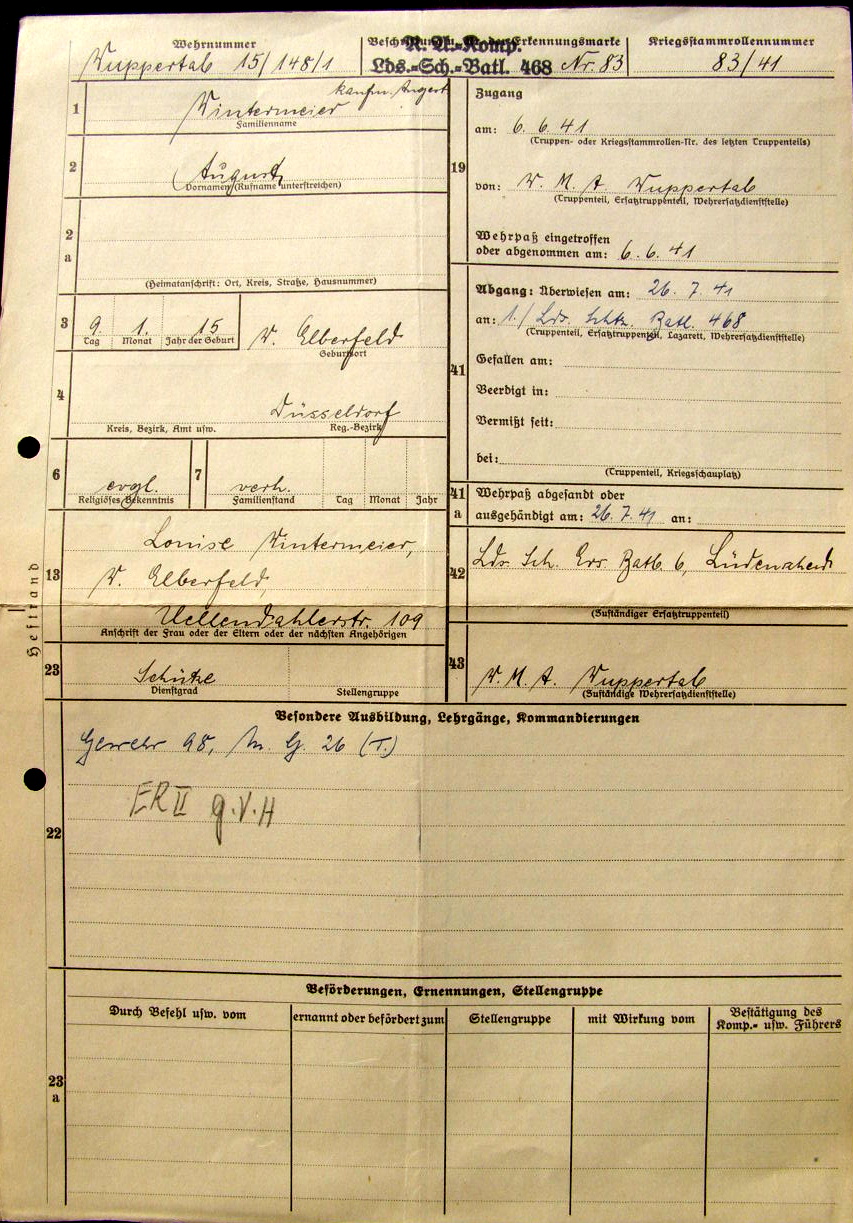 Wehrnummer
Wuppertal 15/148/1
Erkennungsmarke
R. A.-Komp.
Lds.-Sch.-Batl. 468 Nr. 83
Kriegsstammrollennummer
83/41
1
kaufm. Angest
Wintermeier
Familienname
2
August
Vornamen (Rufname unterstreichen)
2
a
(Heimatanschrift: Ort, Kreis, Straße, Hausnummer)
3
9. 1. 15
Tag Monat Jahr der Geburt
W. Elberfeld
Geburtsort
4
Düsseldorf
Kreis, Bezirk, Amt usw. Reg.-Bezirk
6
evgl.
Religiöses Bekenntnis
7
verh.
Familienstand Tag Monat Jahr
13
Louise Wintermeier,
W. Elberfeld,
Uellendahlerstr. 109
Anschrift der Frau oder der Eltern oder der nächsten Angehörigen
Heftrand
23
Schütze
Dienstgrad Stellengruppe
19
Zugang
am: 6. 6. 41
(Truppen- oder Kriegsstammrollen-Nr. des letzten Truppenteils)
von: W. M. A. Wuppertal
(Truppenteil, Ersatztruppenteil, Wehrersatzdienststelle)
Wehrpaß eingetroffen
oder abgenommen am: 6. 6. 41
41
Abgang: Überwiesen am: 26. 7. 41
an: 1./ Lds. Schtz. Batl. 468
(Truppenteil, Ersatztruppenteil, Lazarett, Wehrersatzdienststelle)
Gefallen am:
Beerdigt in:
Vermißt seit:
bei:
(Truppenteil, Kriegsschauplatz)
41
a
Wehrpaß abgesandt oder
ausgehändigt am: 26. 7. 41 an:
42
Lds. Sch. Ers. Batl. 6, Lüdenscheid
(Zuständiger Ersatztruppenteil)
43
W. M. A. Wuppertal
(Zuständige Wehrersatzdienststelle)
Besondere Ausbildung, Lehrgänge, Kommandierungen
22
Gewehr 98, M. G. 26 (T.)
ER II g.V.H
Beförderungen, Ernennungen, Stellengruppe
23
a
Durch Befehl usw. vom
ernannt oder befördert zum
Stellengruppe
mit Wirkung vom
Bestätigung des
Komp.- usw. Führers